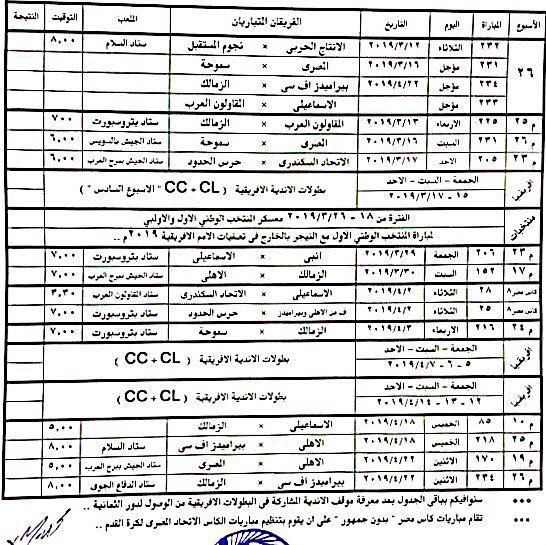 الأسبوع المباراة اليوم التاريخ الفريقان المتباريان الملعب التوقيت النتيجة
٢٦ ٢٣٢ الثلاثاء ٢٠١٩/٣/١٢ الانتاج الحربى × نجوم المستقبل ستاد السلام ٨,٠٠
٢٣١ مؤجل ٢٠١٩/٣/١٦ المصرى × سموحة
٢٣٤ مؤجل ٢٠١٩/٤/٢٢ بيراميدز اف سى × الزمالك
٢٣٣ مؤجل الاسماعيلى × المقاولون العرب
م ٢٥ ٢٢٥ الاربعاء ٢٠١٩/٣/١٣ المقاولون العرب × الزمالك ستاد بتروسبورت ٧٠٠
م ٢٦ ٢٣١ السبت ٢٠١٩/٣/١٦ المصرى × سموحة ستاد الجيش بالسويس ٦,٠٠
م ٢٣ ٢٠٥ الاحد ٢٠١٩/٣/١٧ الاتحاد السكندرى × حرس الحدود ستاد الجيش ببرج العرب ٦,٠٠
افريقيا الجمعة - السبت - الاحد بطولات الاندية الافريقية ( CC + CL ) " الاسبوع السادس "
١٥ - ٢٠١٩/٣/١٧
منتخبات الفترة من ١٨ - ٢٠١٩/٣/٢٦ معسكر المنتخب الوطني الاول والاولمبي
لمباراة المنتخب الوطني الاول مع النيجر بالخارج فى تصفيات الامم الافريقية ٢٠١٩م ..
م ٢٣ ٢٠٦ الجمعة ٢٠١٩/٣/٢٩ انبى × الاسماعيلى ستاد بتروسبورت ٧,٠٠
م ١٧ ١٥٢ السبت ٢٠١٩/٣/٣٠ الزمالك × الاهلى ستاد الجيش ببرج العرب ٧,٠٠
كاس مصر ٨ ٢٨ الثلاثاء ٢٠١٩/٤/٢ الاسماعيلى × الاتحاد السكندرى ستاد المقاولون العرب ٣,٣٠
كاس مصر ٨ ٢٥ الثلاثاء ٢٠١٩/٤/٢ ف من الاهلى وبيراميدز × حرس الحدود ستاد بتروسبورت ٧,٠٠
م ٢٤ ٢١٦ الاربعاء ٢٠١٩/٤/٣ الزمالك × سموحة ستاد بتروسبورت ٧,٠٠
افريقيا الجمعة - السبت - الاحد بطولات الاندية الافريقية ( CC + CL )
٥ - ٦ - ٢٠١٩/٤/٧
افريقيا الجمعة - السبت - الاحد بطولات الاندية الافريقية ( CC + CL )
١٢ - ١٣ - ٢٠١٩/٤/١٤
م ١٠ ٨٥ الخميس ٢٠١٩/٤/١٨ الاسماعيلى × الزمالك ٥,٠٠
م ٢٥ ٢١٨ الخميس ٢٠١٩/٤/١٨ الاهلى × بيراميدز اف سى ستاد السلام ٨,٠٠
م ١٩ ١٧٠ الاثنين ٢٠١٩/٤/٢٢ الاهلى × المصرى ستاد الجيش ببرج العرب ٥,٠٠
م ٢٦ ٢٣٤ الاثنين ٢٠١٩/٤/٢٢ بيراميدز اف سى × الزمالك ستاد الدفاع الجوى ٨,٠٠
••• سنوافيكم بباقى الجدول بعد معرفة موقف الاندية المشاركة فى البطولات الافريقية من الوصول لدور الثمانية ..
••• تقام مباريات كاس مصر " بدون جمهور " على ان يقوم بتنظيم مباريات الكاس الاتحاد المصرى لكرة القدم ..